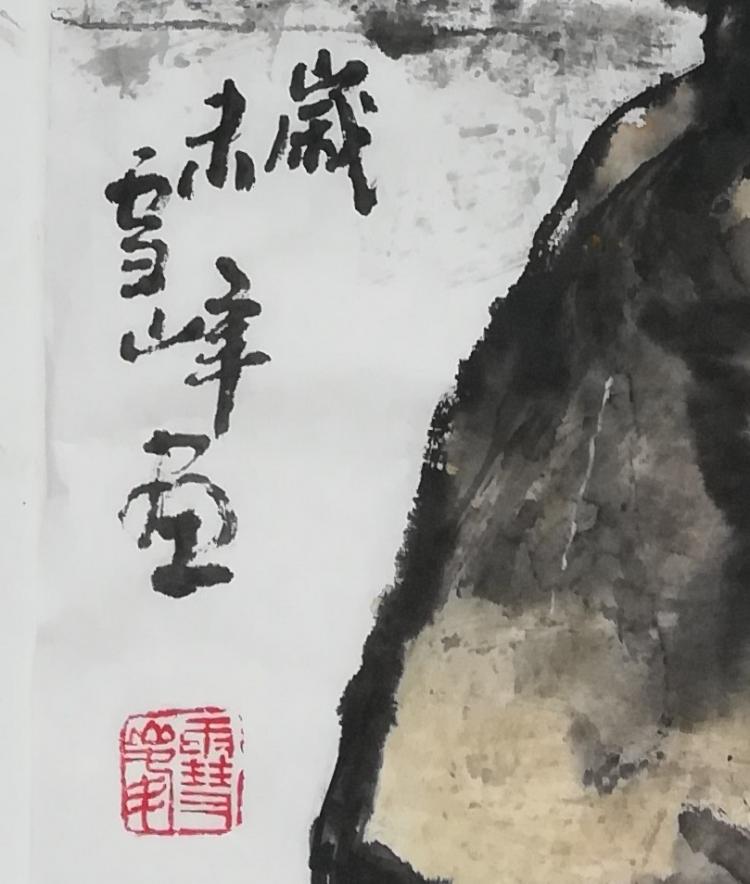 歲末
雪峰画
雪峰